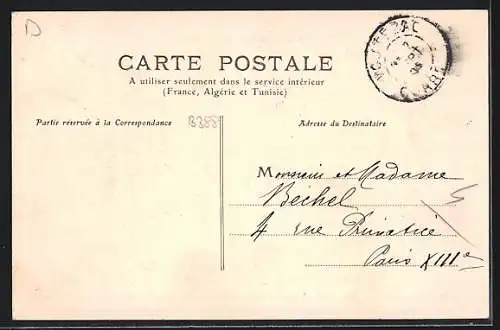 D
CARTE POSTALE
A utiliser seulement dans le service intérieur
(France, Algérie et Tunisie)
Partie réservée à la Correspondance
Adresse du Destinataire
Monsieur et Madame
Bechel
4 rue Primatice
Paris XIIIe